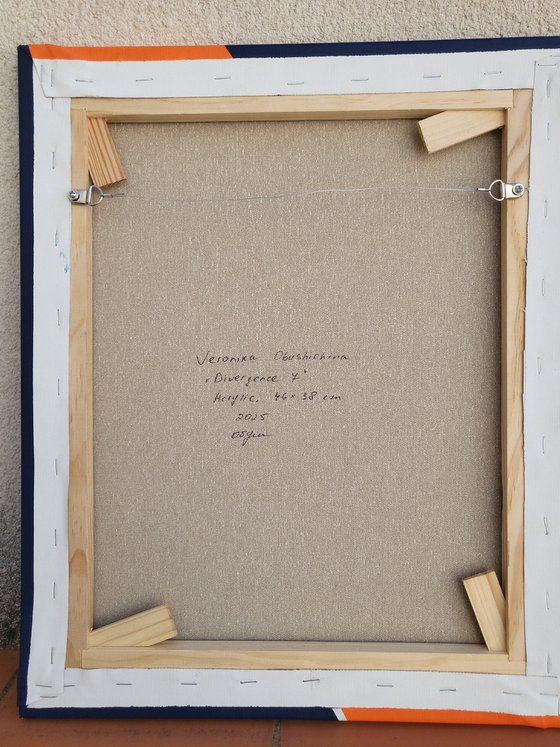 Veronika Obushichina
"Divergence 7"
Acrylic. 46 x 38 cm
2025